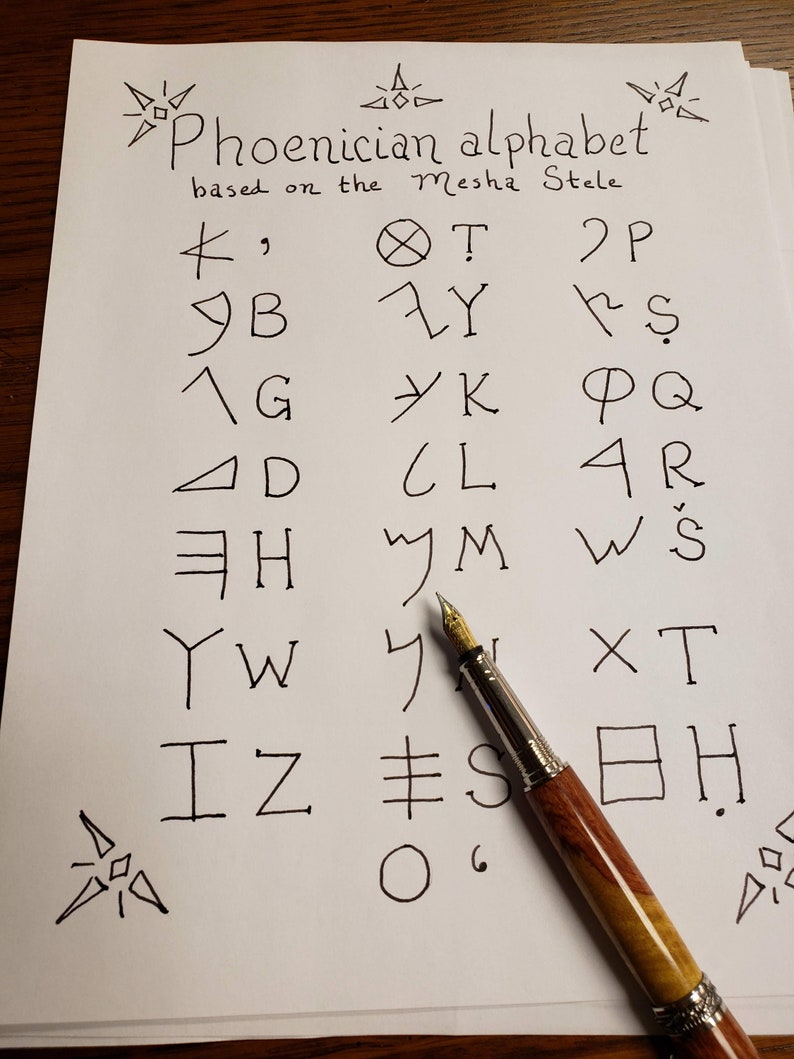 Phoenician alphabet
based on the Mesha Stele
𐤀 ʼ 𐤈 Ṭ 𐤐 P
𐤁 B 𐤉 Y 𐤑 Ṣ
𐤂 G 𐤊 K 𐤒 Q
𐤃 D 𐤋 L 𐤓 R
𐤄 H 𐤌 M 𐤔 Š
𐤅 W 𐤍 N 𐤕 T
𐤆 Z 𐤎 S 𐤇 Ḥ
𐤏 ʻ